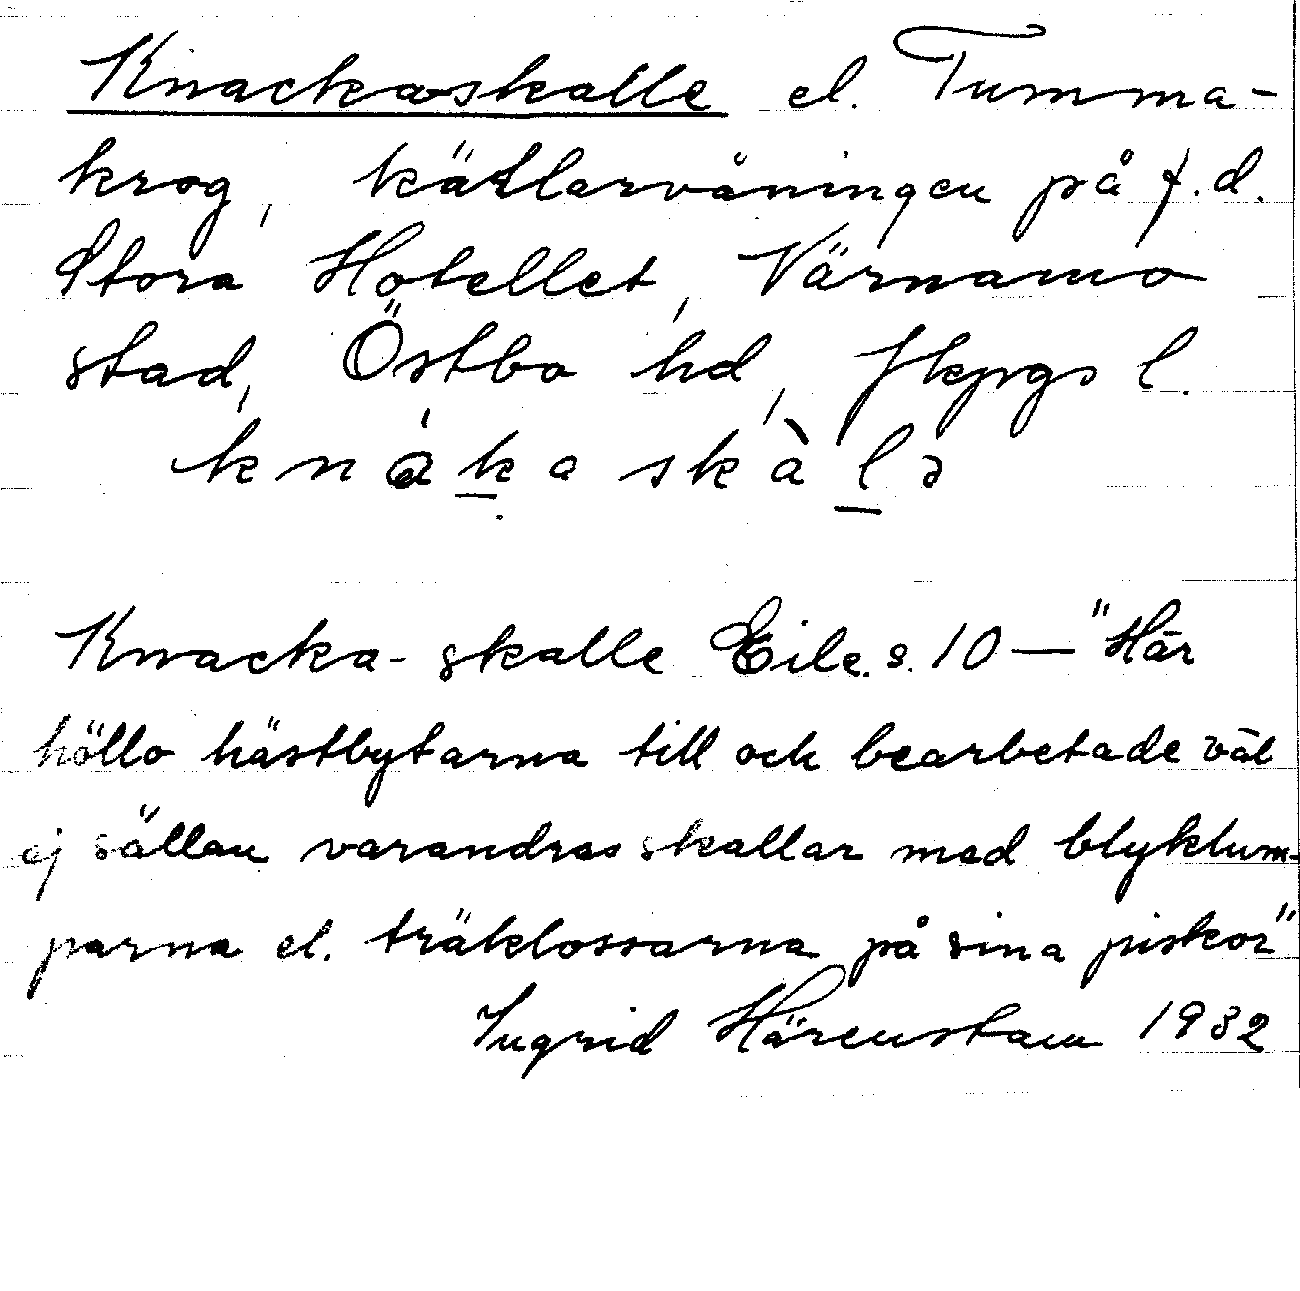 Knackaskalle el. Tumma-
krog, källarvåningen på f.d.
Stora Hotellet, Värnamo
stad, Östbo hd, Jkpgs l.
knákaskàlə
Knacka-skalle Eile. s. 10 — "Här
höllo hästbytarna till och bearbetade väl
ej sällan varandras skallar med blyklum-
parna el. träklossarna på sina piskor"
Ingrid Härenstam 1932